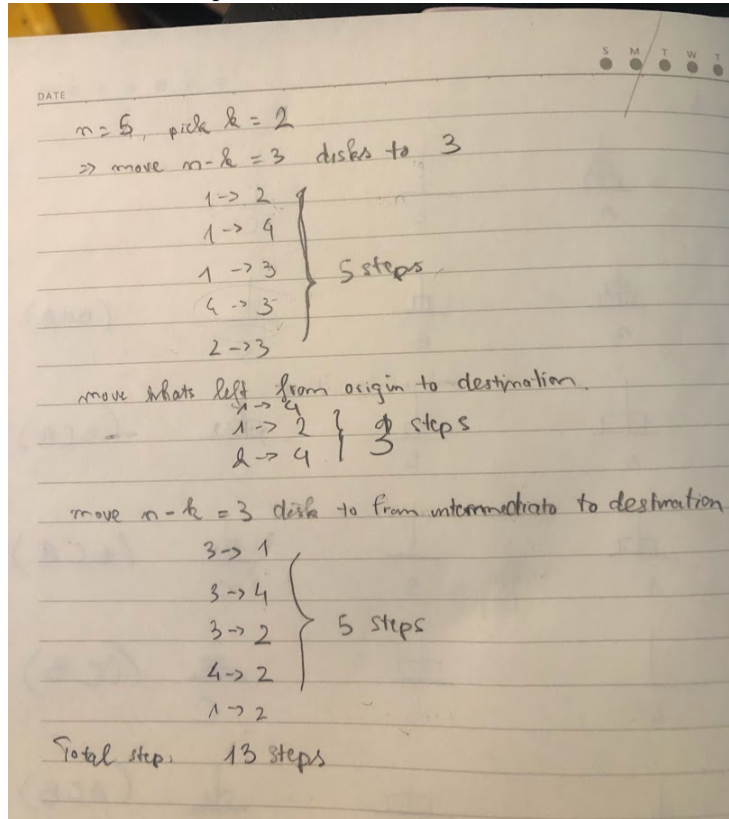 S M T W T
DATE
n = 5, pick k = 2
=> move n-k = 3 disks to 3
1 -> 2
1 -> 4
1 -> 3 5 steps
4 -> 3
2 -> 3
move whats left from origin to destination.
1 -> 4
1 -> 2 3 steps
2 -> 4
move n-k = 3 disk to from intermediate to destination
3 -> 1
3 -> 4
3 -> 2 5 steps
4 -> 2
1 -> 2
Total step: 13 steps